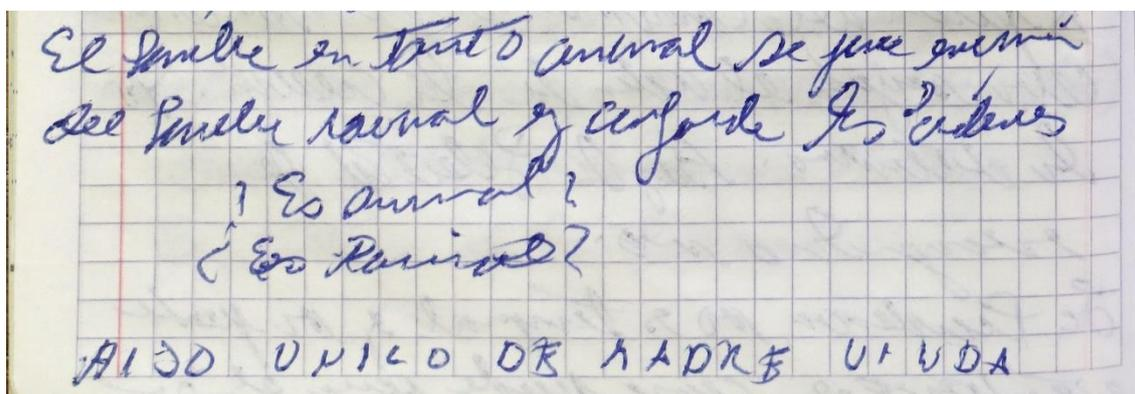 El hombre en tanto animal se pone encima
del hombre racional y confunde los órdenes
¿Es animal?
¿Es Racional?
HIJO UNICO DE MADRE VIUDA